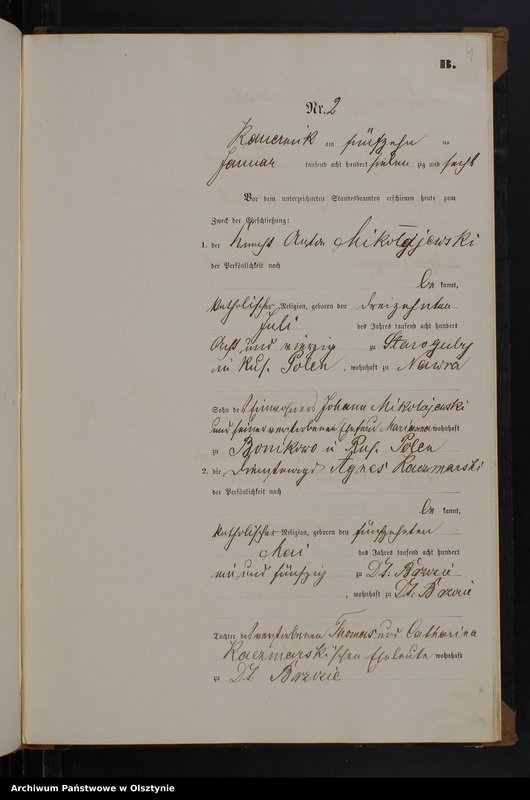 B.
Nr. 2
Kauernik am fünfzehn ten
Januar tausend acht hundert sieben zig und sechs
Vor dem unterzeichneten Standesbeamten erschienen heute zum
Zweck der Eheschließung:
1. der Knecht Anton Mikolajewski
der Persönlichkeit nach
be kannt,
katholischer Religion, geboren den dreizehnten
Juli des Jahres tausend acht hundert
Acht und vierzig zu Staroguby
in Rus. Polen, wohnhaft zu Nawra
Sohn des Einwohners Johann Mikolajewski
und seiner verstorbenen Ehefrau Marianna wohnhaft
zu Bonikowo i Rus. Polen
2. die Agnes Kaczmarski
der Persönlichkeit nach
be kannt,
katholischer Religion, geboren den fünfzehnten
Mai des Jahres tausend acht hundert
und fünfzig zu Dt. Brzozie
, wohnhaft zu Dt. Brzozie
Tochter der verstorbenen Thomas und Catharina
Kaczmarski'schen Eheleute wohnhaft
zu Dt. Brzozie
Archiwum Państwowe w Olsztynie